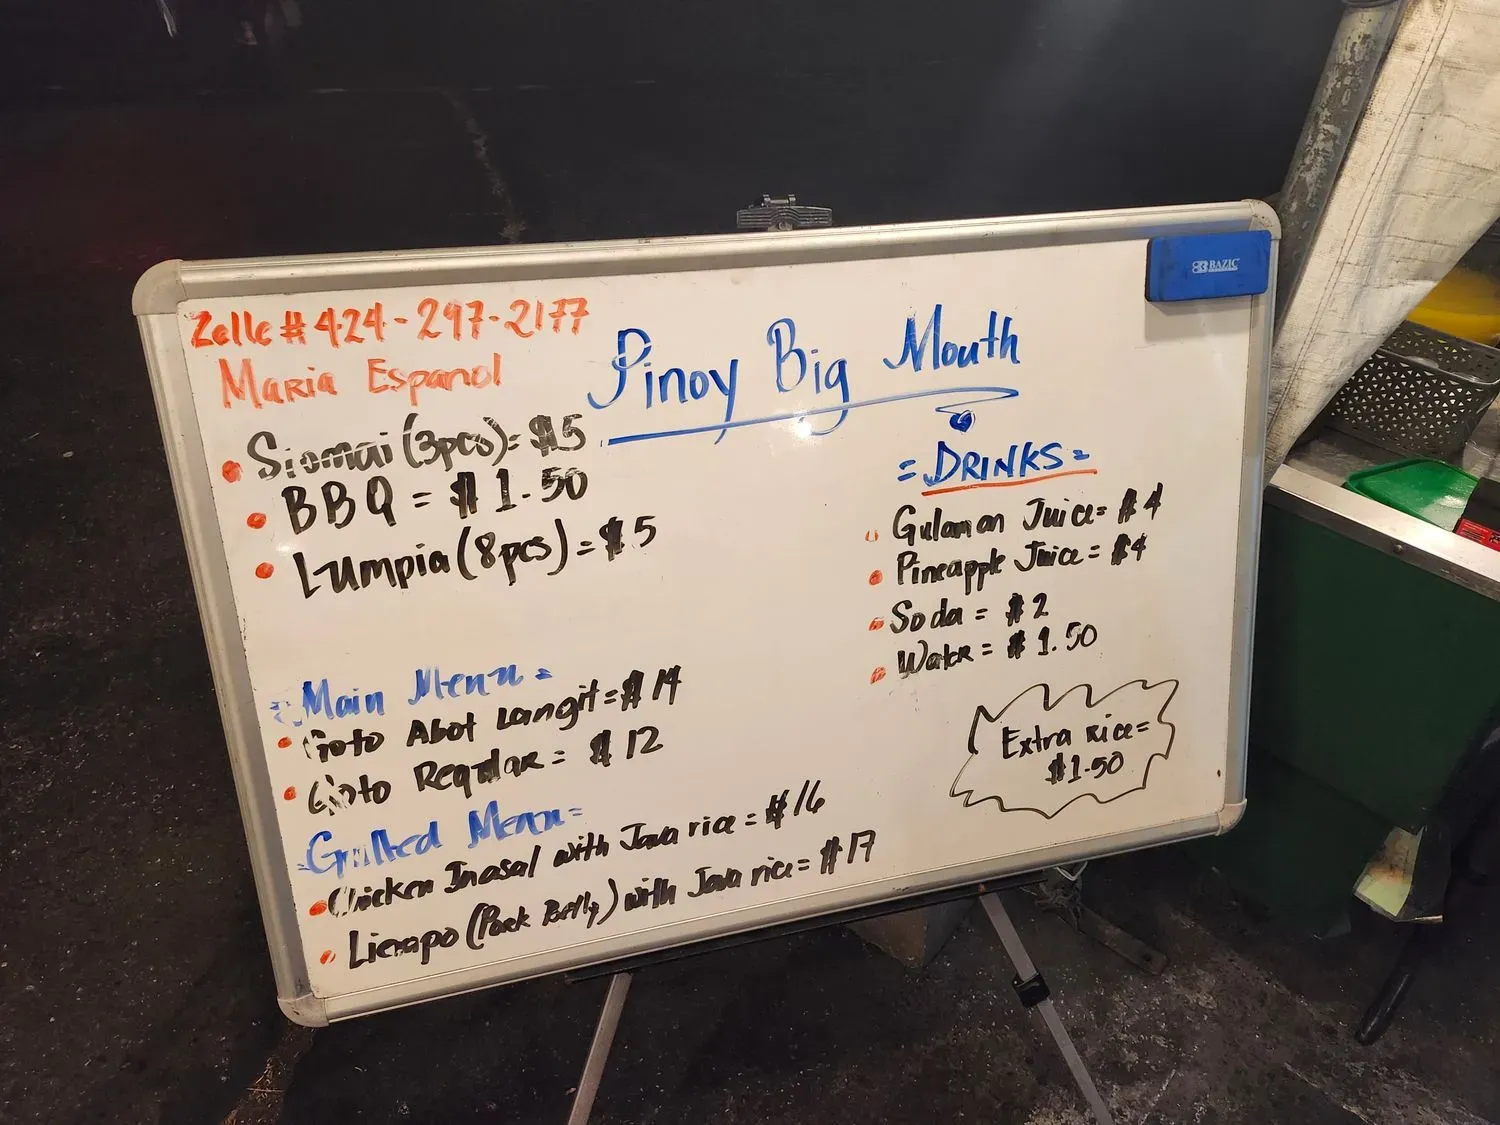 Zelle # 424-297-2177
Maria Espanol
Pinoy Big Mouth
Siomai (3pcs) = $5
BBQ = $1.50
Lumpia (8pcs) = $5
= Main Menu =
Goto Abot Langit = $14
Goto Regular = $12
= Grilled Menu =
Chicken Inasal with Java rice = $16
Liempo (Pork Belly) with Java rice = $17
= DRINKS =
Gulaman Juice = $4
Pineapple Juice = $4
Soda = $2
Water = $1.50
Extra rice =
$1.50
BAZIC